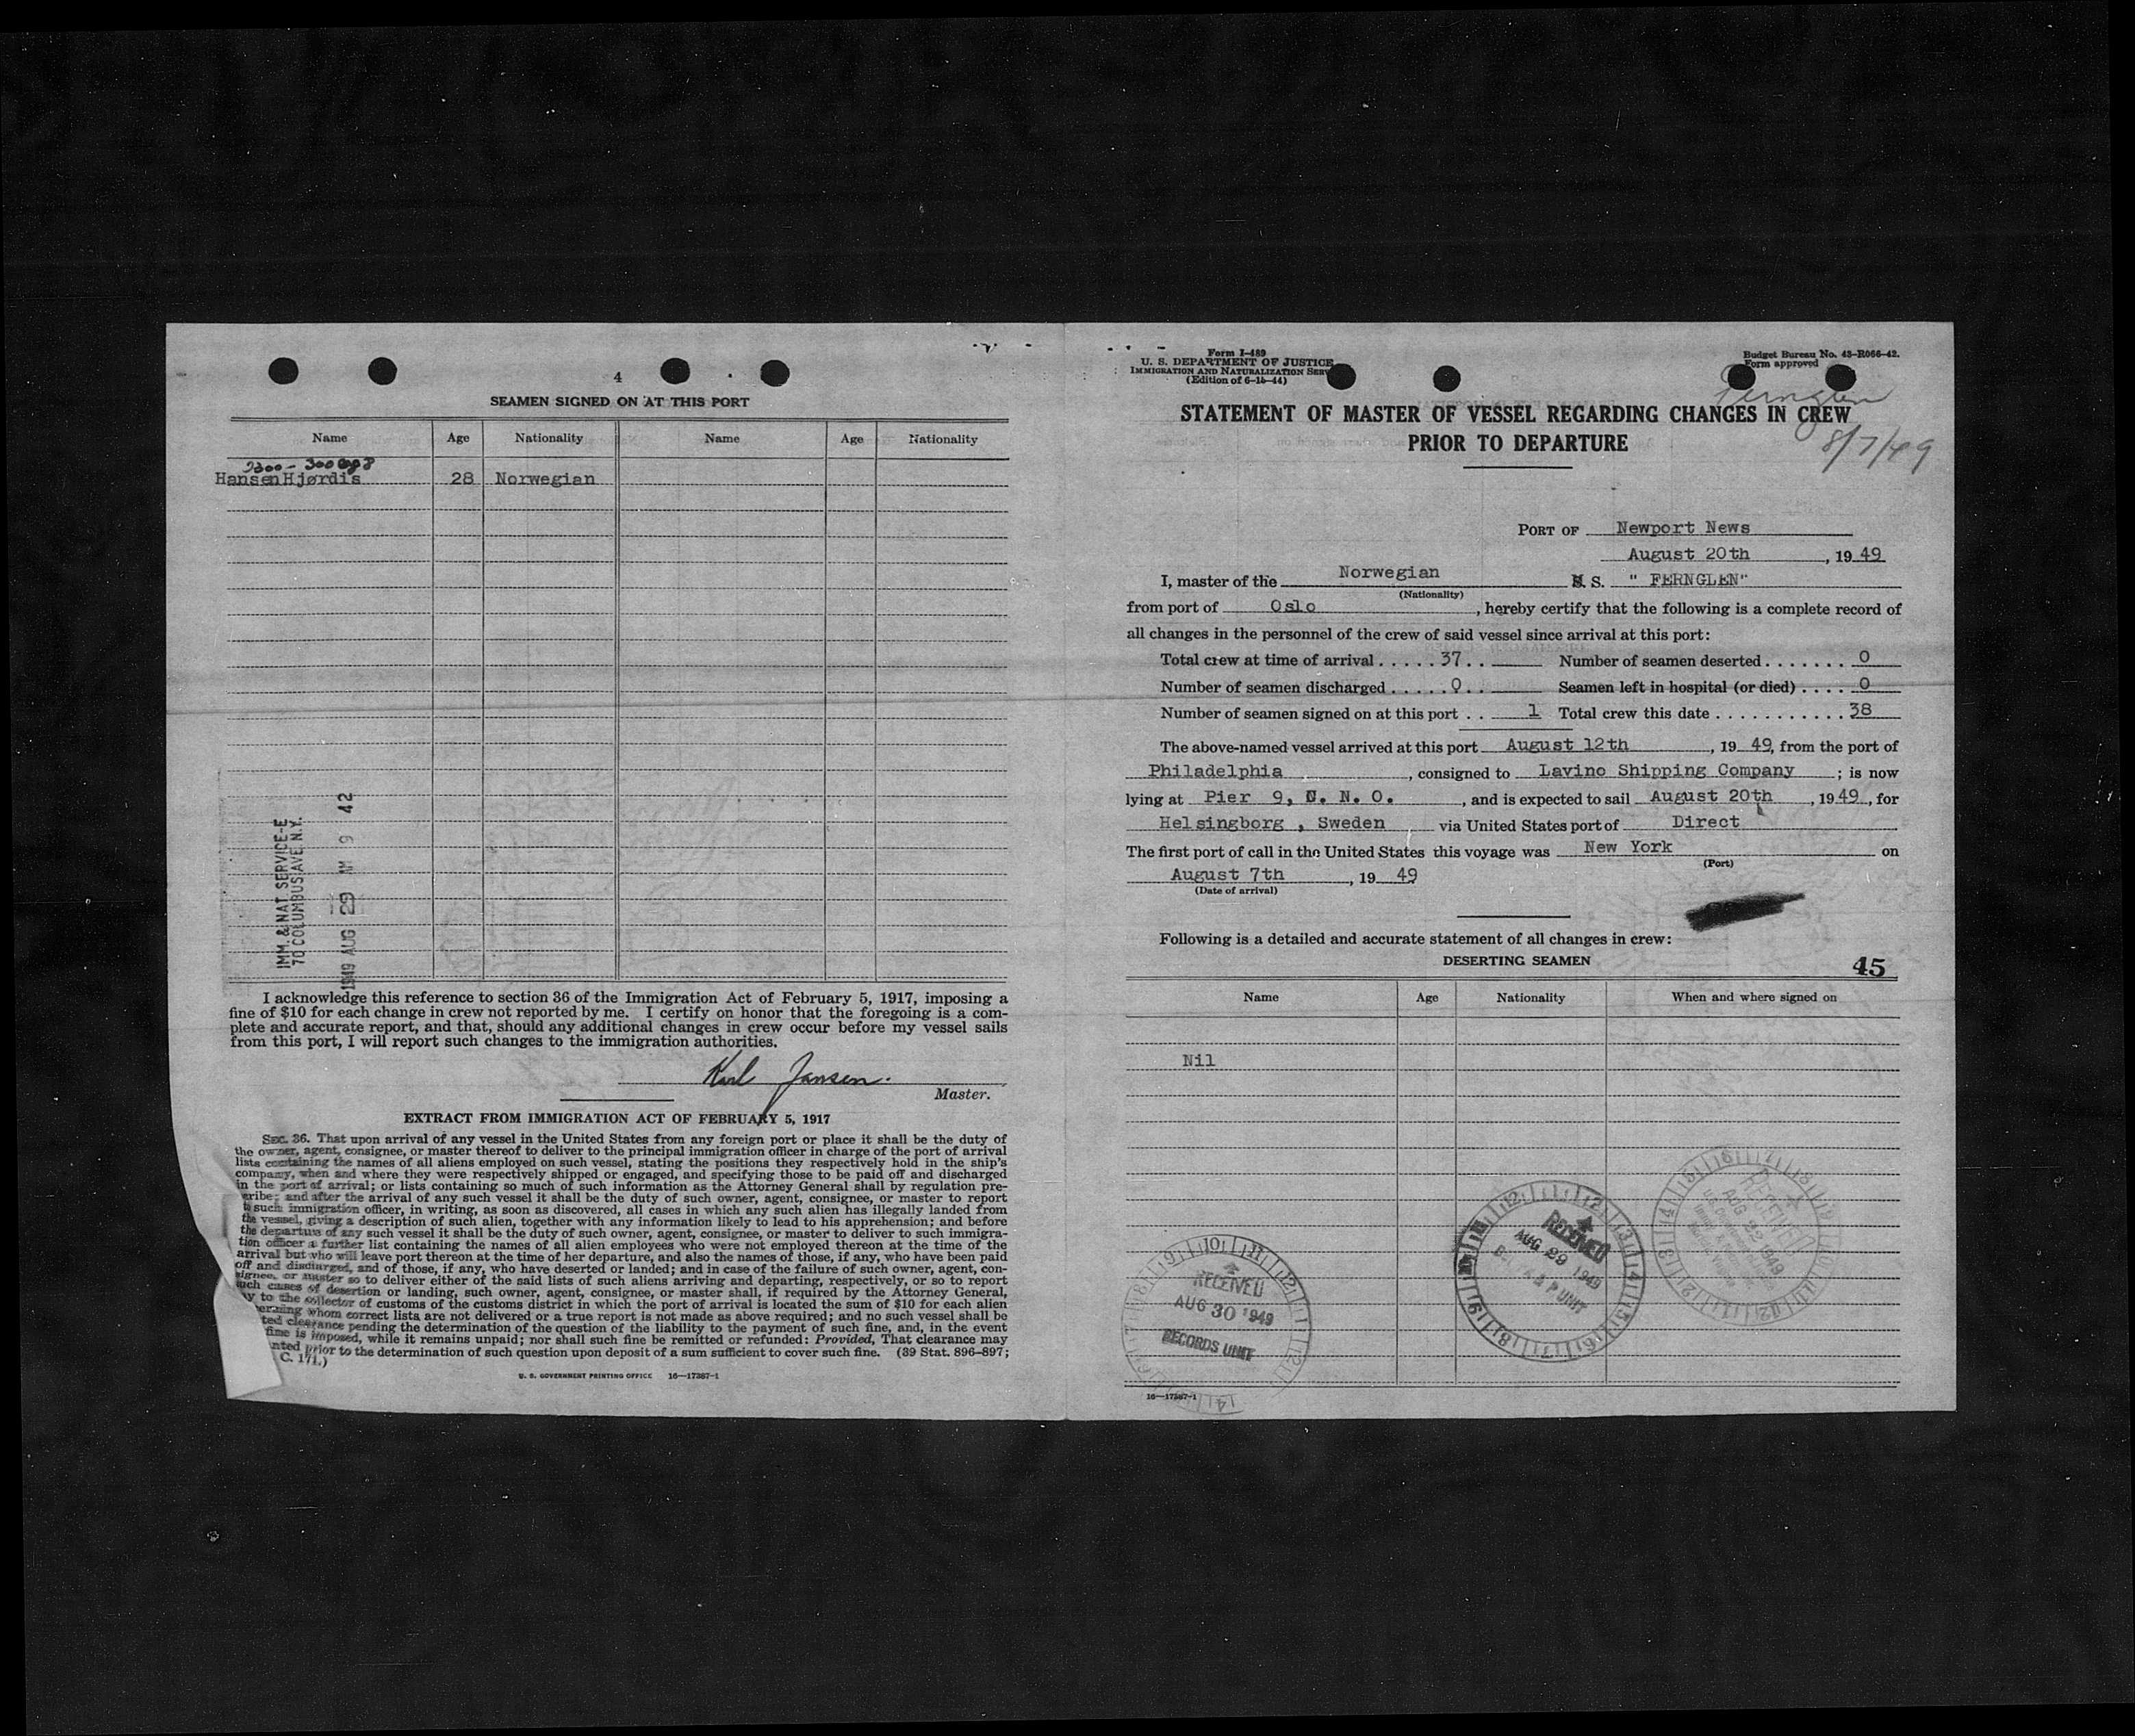 4
SEAMEN SIGNED ON AT THIS PORT
Name Age Nationality Name Age Nationality
Hansen Hjørdis 28 Norwegian
IMM. & NAT. SERVICE-E
70 COLUMBUS AVE. N.Y.
1949 AUG 29 AM 9 42
I acknowledge this reference to section 36 of the Immigration Act of February 5, 1917, imposing a
fine of $10 for each change in crew not reported by me. I certify on honor that the foregoing is a com-
plete and accurate report, and that, should any additional changes in crew occur before my vessel sails
from this port, I will report such changes to the immigration authorities.
Karl Jansen.
Master.
EXTRACT FROM IMMIGRATION ACT OF FEBRUARY 5, 1917
SEC. 36. That upon arrival of any vessel in the United States from any foreign port or place it shall be the duty of
the owner, agent, consignee, or master thereof to deliver to the principal immigration officer in charge of the port of arrival
lists containing the names of all aliens employed on such vessel, stating the positions they respectively hold in the ship's
company, when and where they were respectively shipped or engaged, and specifying those to be paid off and discharged
in the port of arrival; or lists containing so much of such information as the Attorney General shall by regulation pre-
cribe; and after the arrival of any such vessel it shall be the duty of such owner, agent, consignee, or master to report
to such immigration officer, in writing, as soon as discovered, all cases in which any such alien has illegally landed from
the vessel, giving a description of such alien, together with any information likely to lead to his apprehension; and before
the departure of any such vessel it shall be the duty of such owner, agent, consignee, or master to deliver to such immigra-
tion officer a further list containing the names of all alien employees who were not employed thereon at the time of the
arrival but who will leave port thereon at the time of her departure, and also the names of those, if any, who have been paid
off and discharged, and of those, if any, who have deserted or landed; and in case of the failure of such owner, agent, con-
signee, or master so to deliver either of the said lists of such aliens arriving and departing, respectively, or so to report
such cases of desertion or landing, such owner, agent, consignee, or master shall, if required by the Attorney General,
ay to the collector of customs of the customs district in which the port of arrival is located the sum of $10 for each alien
erning whom correct lists are not delivered or a true report is not made as above required; and no such vessel shall be
ted clearance pending the determination of the question of the liability to the payment of such fine, and, in the event
fine is imposed, while it remains unpaid; nor shall such fine be remitted or refunded: Provided, That clearance may
nted prior to the determination of such question upon deposit of a sum sufficient to cover such fine. (39 Stat. 896-897;
C. 171.)
U. S. GOVERNMENT PRINTING OFFICE 16—17387-1
Form I-489
U. S. DEPARTMENT OF JUSTICE
IMMIGRATION AND NATURALIZATION SERV
(Edition of 6-15-44)
Budget Bureau No. 43-R066-42.
Form approved
Fernglen
8/7/49
STATEMENT OF MASTER OF VESSEL REGARDING CHANGES IN CREW
PRIOR TO DEPARTURE
PORT OF Newport News
August 20th, 19 49
I, master of the Norwegian S. S. " FERNGLEN"
(Nationality)
from port of Oslo, hereby certify that the following is a complete record of
all changes in the personnel of the crew of said vessel since arrival at this port:
Total crew at time of arrival ..... 37 .. Number of seamen deserted ....... 0
Number of seamen discharged ..... 0 .. Seamen left in hospital (or died) .... 0
Number of seamen signed on at this port .. 1 Total crew this date ........... 38
The above-named vessel arrived at this port August 12th, 19 49, from the port of
Philadelphia, consigned to Lavino Shipping Company; is now
lying at Pier 9, C. N. O., and is expected to sail August 20th, 19 49, for
Helsingborg , Sweden via United States port of Direct
The first port of call in the United States this voyage was New York on
(Port)
August 7th, 19 49
(Date of arrival)
Following is a detailed and accurate statement of all changes in crew:
DESERTING SEAMEN 45
Name Age Nationality When and where signed on
Nil
RECEIVED
AUG 30 1949
RECORDS UNIT
RECEIVED
AUG 29 1949
P UNIT
RECEIVED
AUG 22 1949
16—17387-1